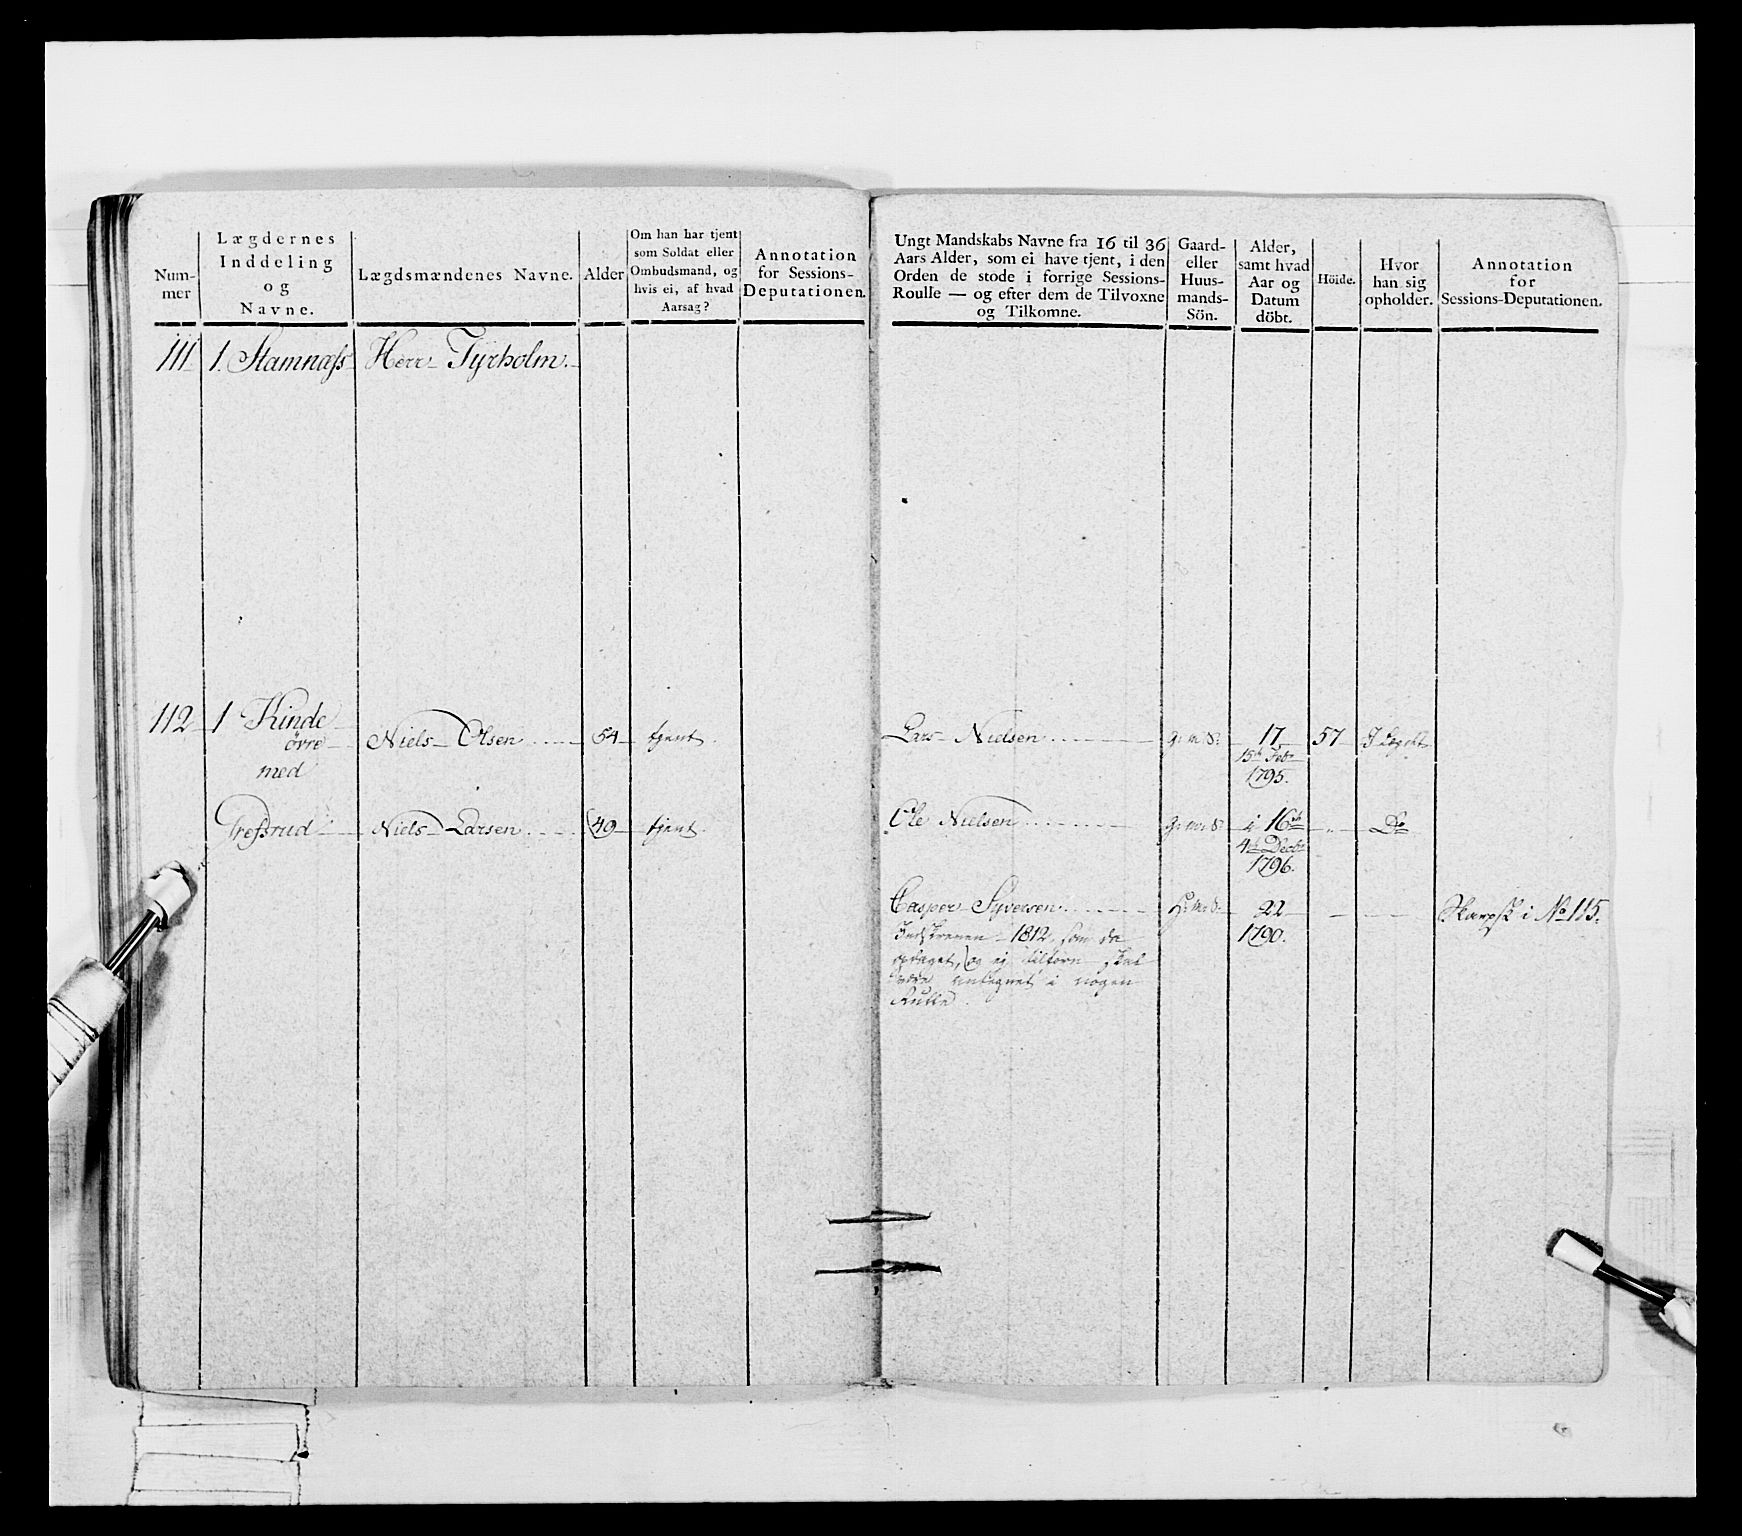 Num-
mer
Lægdernes
Inddeling
og
Navne.
Lægdsmændenes Navne.
Alder
Om han har tjent
som Soldat eller
Ombudsmand, og
hvis ei, af hvad
Aarsag?
Annotation
for Sessions-
Deputationen.
111 1. Stamnæss Herr Tyrholm.
112 1 Kinde
øvre Niels Olsen 54 tjent.
med
Trefsrud Niels Larsen 49 tjent.
Ungt Mandskabs Navne fra 16 til 36
Aars Alder, som ei have tjent, i den
Orden de stode i forrige Sessions-
Roulle — og efter dem de Tilvoxne
og Tilkomne.
Gaard-
eller
Huus-
mands-
Sön.
Alder,
samt hvad
Aar og
Datum
döbt.
Höide.
Hvor
han sig
opholder.
Annotation
for
Sessions-Deputationen.
Lars Nielsen G: m: S: 17 57 I Lægdet
15de Febr
1795.
Ole Nielsen G: m: S: i 16de „ Do
4de Decbr
1796.
Casper Syversen H: m: S: 22 i No 115.
1790.
Indskreven 1812, som da
opdaget, og ej tilforn skal
være antegnet i nogen
Rulle.